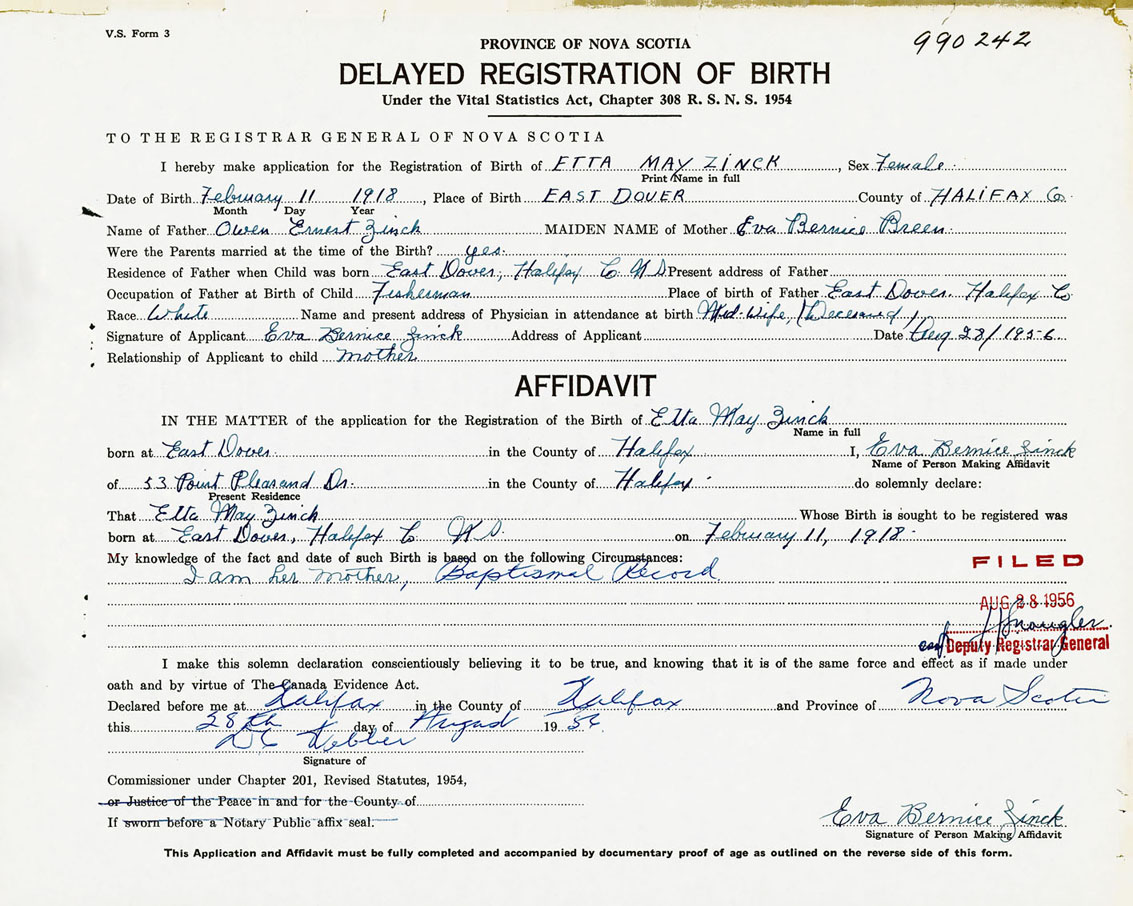 V.S. Form 3
990242
PROVINCE OF NOVA SCOTIA
DELAYED REGISTRATION OF BIRTH
Under the Vital Statistics Act, Chapter 308 R. S. N. S. 1954
TO THE REGISTRAR GENERAL OF NOVA SCOTIA
I hereby make application for the Registration of Birth of ETTA MAY ZINCK, Sex Female.
Print Name in full
Date of Birth February 11 1918, Place of Birth EAST DOVER County of HALIFAX Co.
Month Day Year
Name of Father Owen Ernest Zinck MAIDEN NAME of Mother Eva Bernice Breen.
Were the Parents married at the time of the Birth? yes.
Residence of Father when Child was born East Dover, Halifax Co N.S. Present address of Father
Occupation of Father at Birth of Child Fisherman Place of birth of Father East Dover. Halifax Co
Race White Name and present address of Physician in attendance at birth Mid-wife, (Deceased)
Signature of Applicant Eva Bernice Zinck Address of Applicant Date Aug 28/1956.
Relationship of Applicant to child mother
AFFIDAVIT
IN THE MATTER of the application for the Registration of the Birth of Etta May Zinck
Name in full
born at East Dover. in the County of Halifax I, Eva Bernice Zinck
Name of Person Making Affidavit
of 53 Point Pleasand Dr. in the County of Halifax. do solemnly declare:
Present Residence
That Etta May Zinck Whose Birth is sought to be registered was
born at East Dover, Halifax Co N.S. on February 11, 1918.
My knowledge of the fact and date of such Birth is based on the following Circumstances:
I am her mother, Baptismal Record
FILED
AUG 28 1956
Deputy Registrar General
I make this solemn declaration conscientiously believing it to be true, and knowing that it is of the same force and effect as if made under
oath and by virtue of The Canada Evidence Act.
Declared before me at Halifax in the County of Halifax and Province of Nova Scotia
this 28th day of August 1956.
Webber
Signature of
Commissioner under Chapter 201, Revised Statutes, 1954,
or Justice of the Peace in and for the County of
If sworn before a Notary Public affix seal.
Eva Bernice Zinck
Signature of Person Making Affidavit
This Application and Affidavit must be fully completed and accompanied by documentary proof of age as outlined on the reverse side of this form.